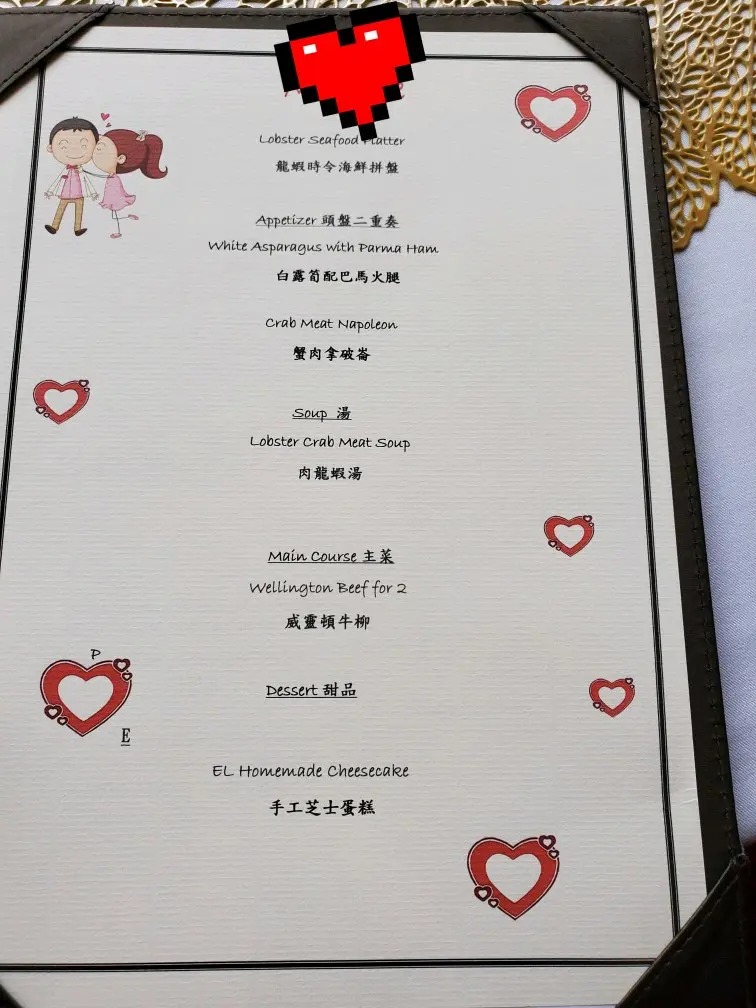 Lobster Seafood Platter
龍蝦時令海鮮拼盤
Appetizer 頭盤二重奏
White Asparagus with Parma Ham
白露筍配巴馬火腿
Crab Meat Napoleon
蟹肉拿破崙
Soup 湯
Lobster Crab Meat Soup
肉龍蝦湯
Main Course 主菜
Wellington Beef for 2
威靈頓牛柳
P
E
Dessert 甜品
EL Homemade Cheesecake
手工芝士蛋糕